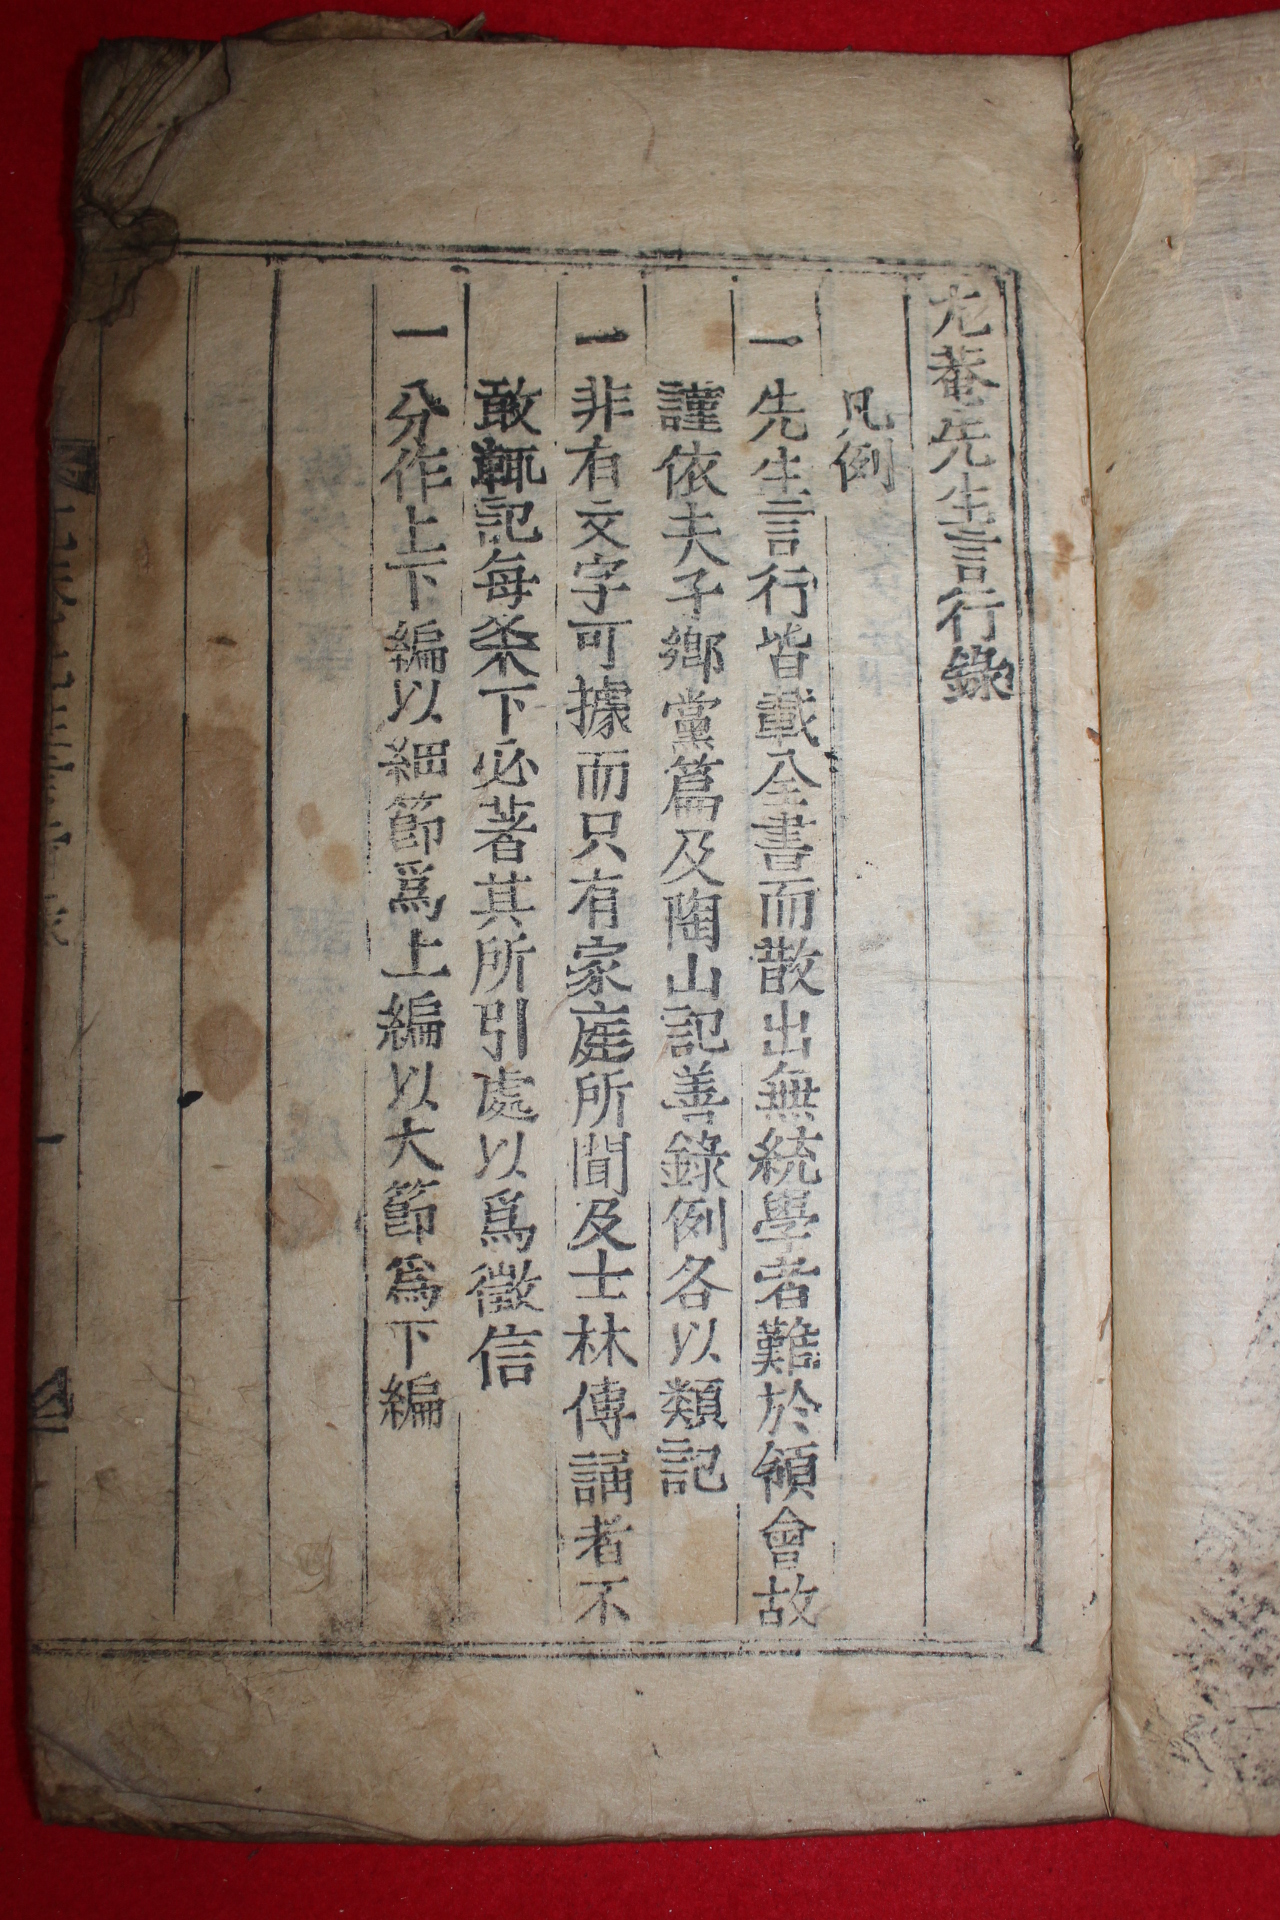 尤菴先生言行錄
凡例
一先生言行皆載全書而散出無統學者難於領會故
謹依夫子鄉黨篇及陶山記善錄例各以類記
一非有文字可據而只有家庭所聞及士林傳誦者不
敢輒記每条下必著其所引處以爲徵信
一分作上下編以細節爲上編以大節爲下編